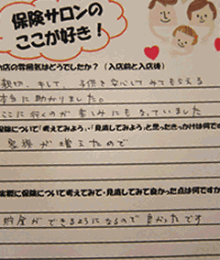 保険サロンの
ここが好き！
店の雰囲気はどうでしたか？（入店前と入店後）
親切、そして、子供を安心してみてもらえる
本当に助かりました。
ここに行くのが楽しみにもなっていました
保険について「考えてみよう」、「見直してみよう」と思ったきっかけは何です
家族が増えたので
実際に保険について考えてみて・見直してみて良かった点は何ですか
貯金ができるようになるので良かったです